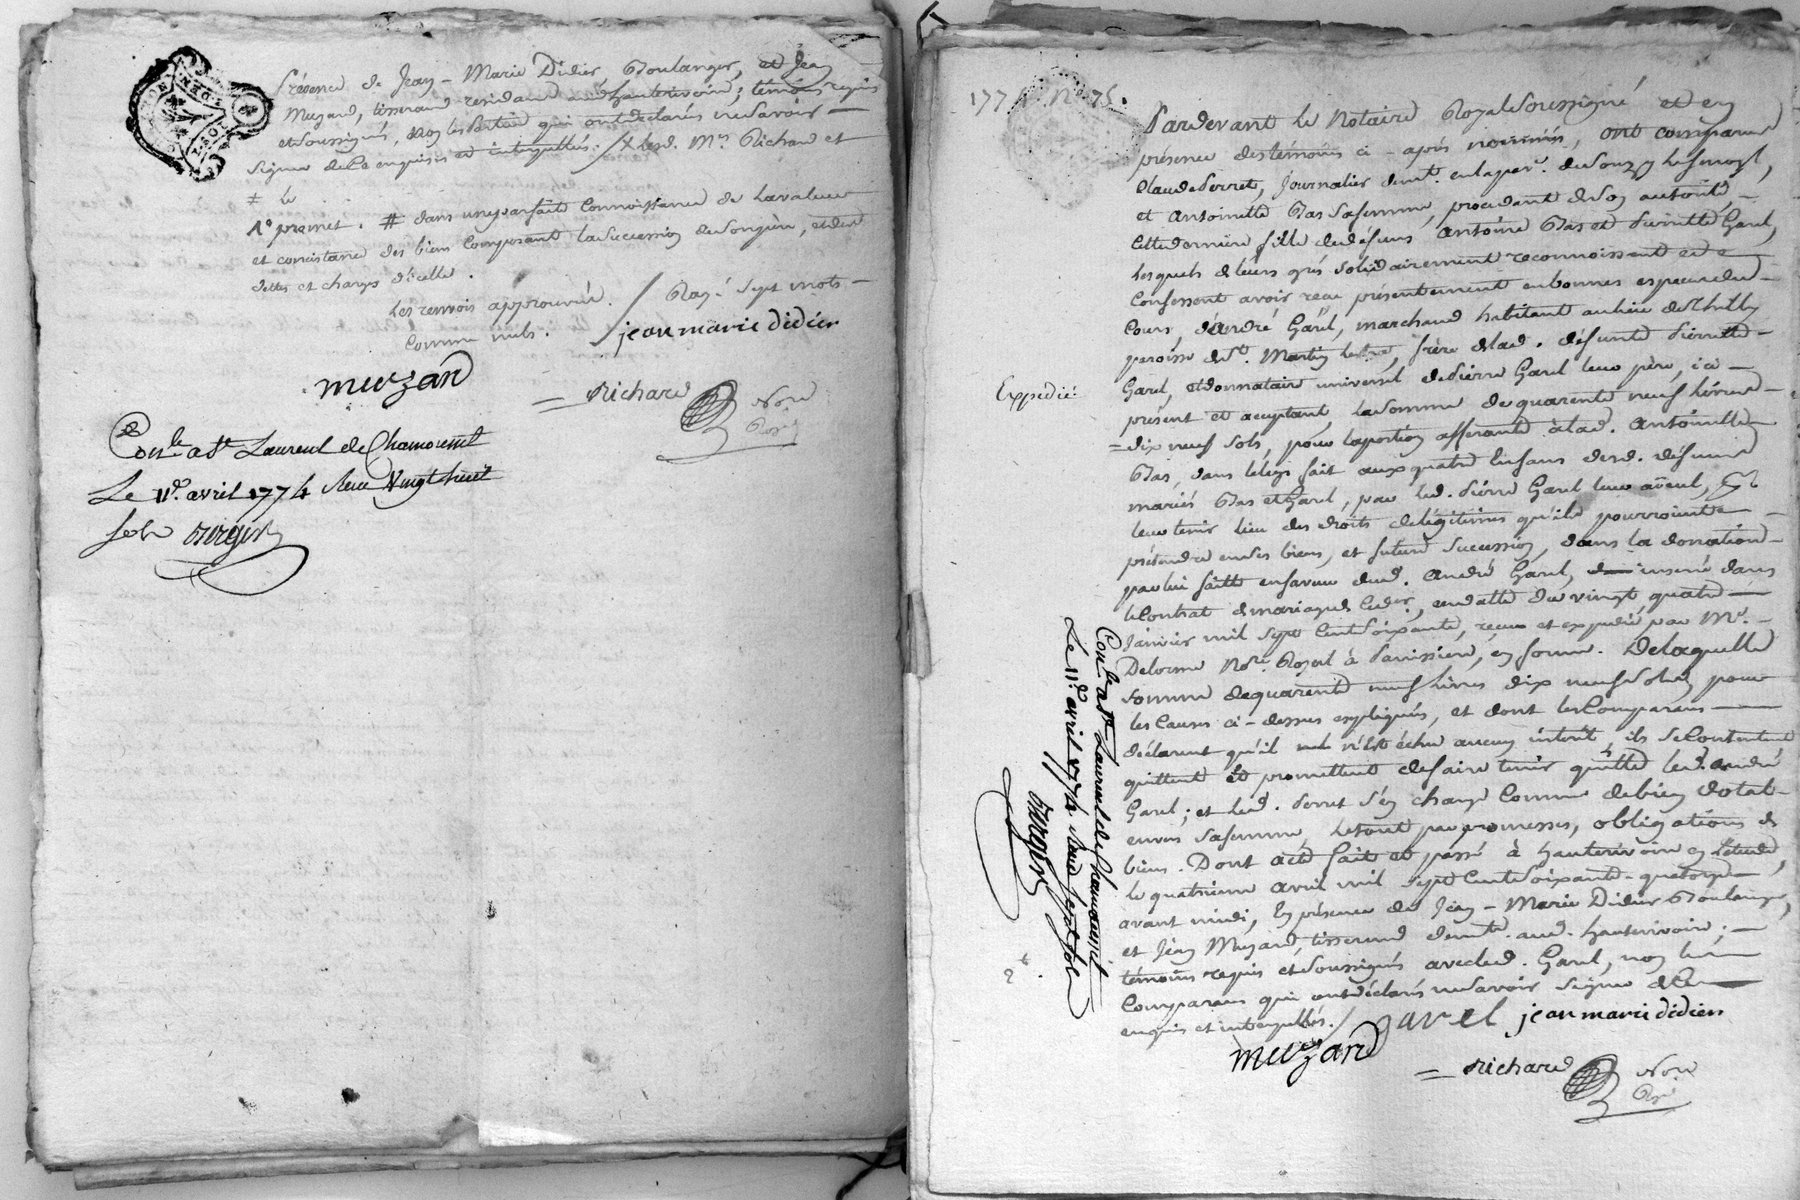 présence de Jean-Marie Didier, Boulanger, et Jean
Muzard, tisserand residant aud. hauterivoire, témoins requis
et soussignés, non les parties qui ont déclarés ne savoir
signer de ce enquises et interpellés. / # lesd. Mrs Richard et
≠ le
1er premet. # dans une parfaite connoissance de la valeur
et concistance des biens composant la succession du songeur, et des
dettes et charges d'icelle.
Les renvois approuvés. / Rayé sept mots
comme nuls. / jean marie didier
muzard
= Richard Nore
Royal
Conlé a St Laurent de Chamousset
Le 11e avril 1774 Reçu Vingt huit
sols Bergier
1774 No 75.
Pardevant le Notaire Royal soussigné et en
présence des témoins ci-après nommés, ont comparus
Claude Perret, Journalier demt. en la par. de Souzy Lesmost,
et Antoinette Bas sa femme, procedant de son autorité,
cette derniere fille de défunts Antoine Bas et Pierrette Garel,
lesquels de leurs grés solidairement reconnoissent et
confessent avoir reçu présentement en bonnes especes du
cours, d'André Garel, marchand habitant au lieu de Chilly
paroisse de St. Martin Lestra, frère de lad. défunte Pierrette
Garel, et donnataire universel de Pierre Garel leur père, ici
Expedié
présent et acceptant, la somme de quarente neuf livres
= dix neuf sols, pour la portion afferante à lad. Antoinette
Bas, dans le legs fait aux quatre Enfans desd. défunts
mariés Bas et Garel, par led. Pierre Garel leur aÿeul, pr
leur tenir lieu des droits de légitimes qu'ils pourroient
prétendre en ses biens, et future succession, dans la donation
par lui faitte en faveur dud. André Garel, insérée dans
le Contrat de mariage de cedr., en datte du vingt quatre
Janvier mil sept cent soixante, reçu et expedié par Me.
Delorme Nore. Royal à Panissiere, en forme. De laquelle
somme de quarente neuf livres dix neuf sols, pour
les causes ci-dessus expliquées, et dont les Comparans
déclarent qu'il n'est échu aucun intérêt, ils se Contentent
quittent et promettent de faire tenir quitte led. André
Garel; et led. Perret s'en charge comme de bien dotal
envers sa femme, le tout par promesses, obligations de
biens. Dont acte fait et passé à hauterivoire en l'étude,
le quatrieme avril mil sept cent soixante-quatorze,
avant midi, En présence de Jean-Marie Didier Boulanger,
et Jean Muzard, tisserand demt. aud. hauterivoire;
témoins requis et soussignés avec led. Garel, non les
comparans qui ont déclarés ne savoir signer de ce
enquis et interpellés. / garel jean marie didier
muzard
= Richard Nore
Ryl
Conlé a St Laurent de Chamousset
Le 11e avril 1774 Reçu sept sols
Bergier